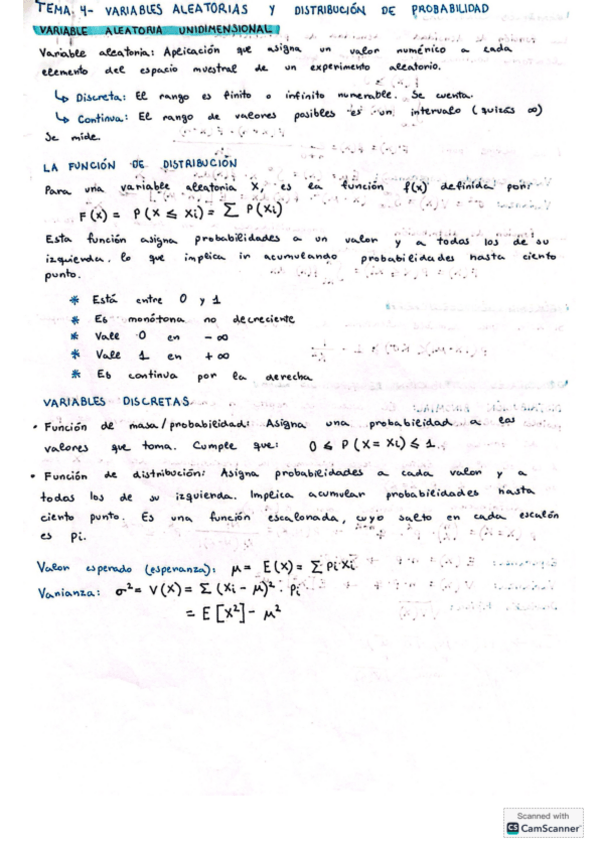 TEMA 4- VARIABLES ALEATORIAS Y DISTRIBUCIÓN DE PROBABILIDAD
VARIABLE ALEATORIA UNIDIMENSIONAL
Variable aleatoria: Aplicación que asigna un valor numérico a cada
elemento del espacio muestral de un experimento aleatorio.
↳ Discreta: El rango es finito o infinito numerable. Se cuenta.
↳ Continua: El rango de valores posibles es un intervalo (quizás ∞)
Se mide.
LA FUNCIÓN DE DISTRIBUCIÓN
Para una variable aleatoria X, es la función f(x) definida por:
F(x) = P(X ≤ Xi) = Σ P(Xi)
Esta función asigna probabilidades a un valor y a todos los de su
izquierda, lo que implica ir acumulando probabilidades hasta cierto
punto.
* Está entre 0 y 1
* Es monótona no decreciente
* Vale 0 en - ∞
* Vale 1 en + ∞
* Es continua por la derecha
VARIABLES DISCRETAS
• Función de masa/probabilidad: Asigna una probabilidad a los
valores que toma. Cumple que: 0 ≤ P(X = Xi) ≤ 1
• Función de distribución: Asigna probabilidades a cada valor y a
todos los de su izquierda. Implica acumular probabilidades hasta
cierto punto. Es una función escalonada, cuyo salto en cada escalón
es Pi.
Valor esperado (esperanza): μ = E(X) = Σ Pi Xi
Varianza: σ² = V(X) = Σ (Xi - μ)² · Pi
= E[X²] - μ²
Scanned with
CS CamScanner